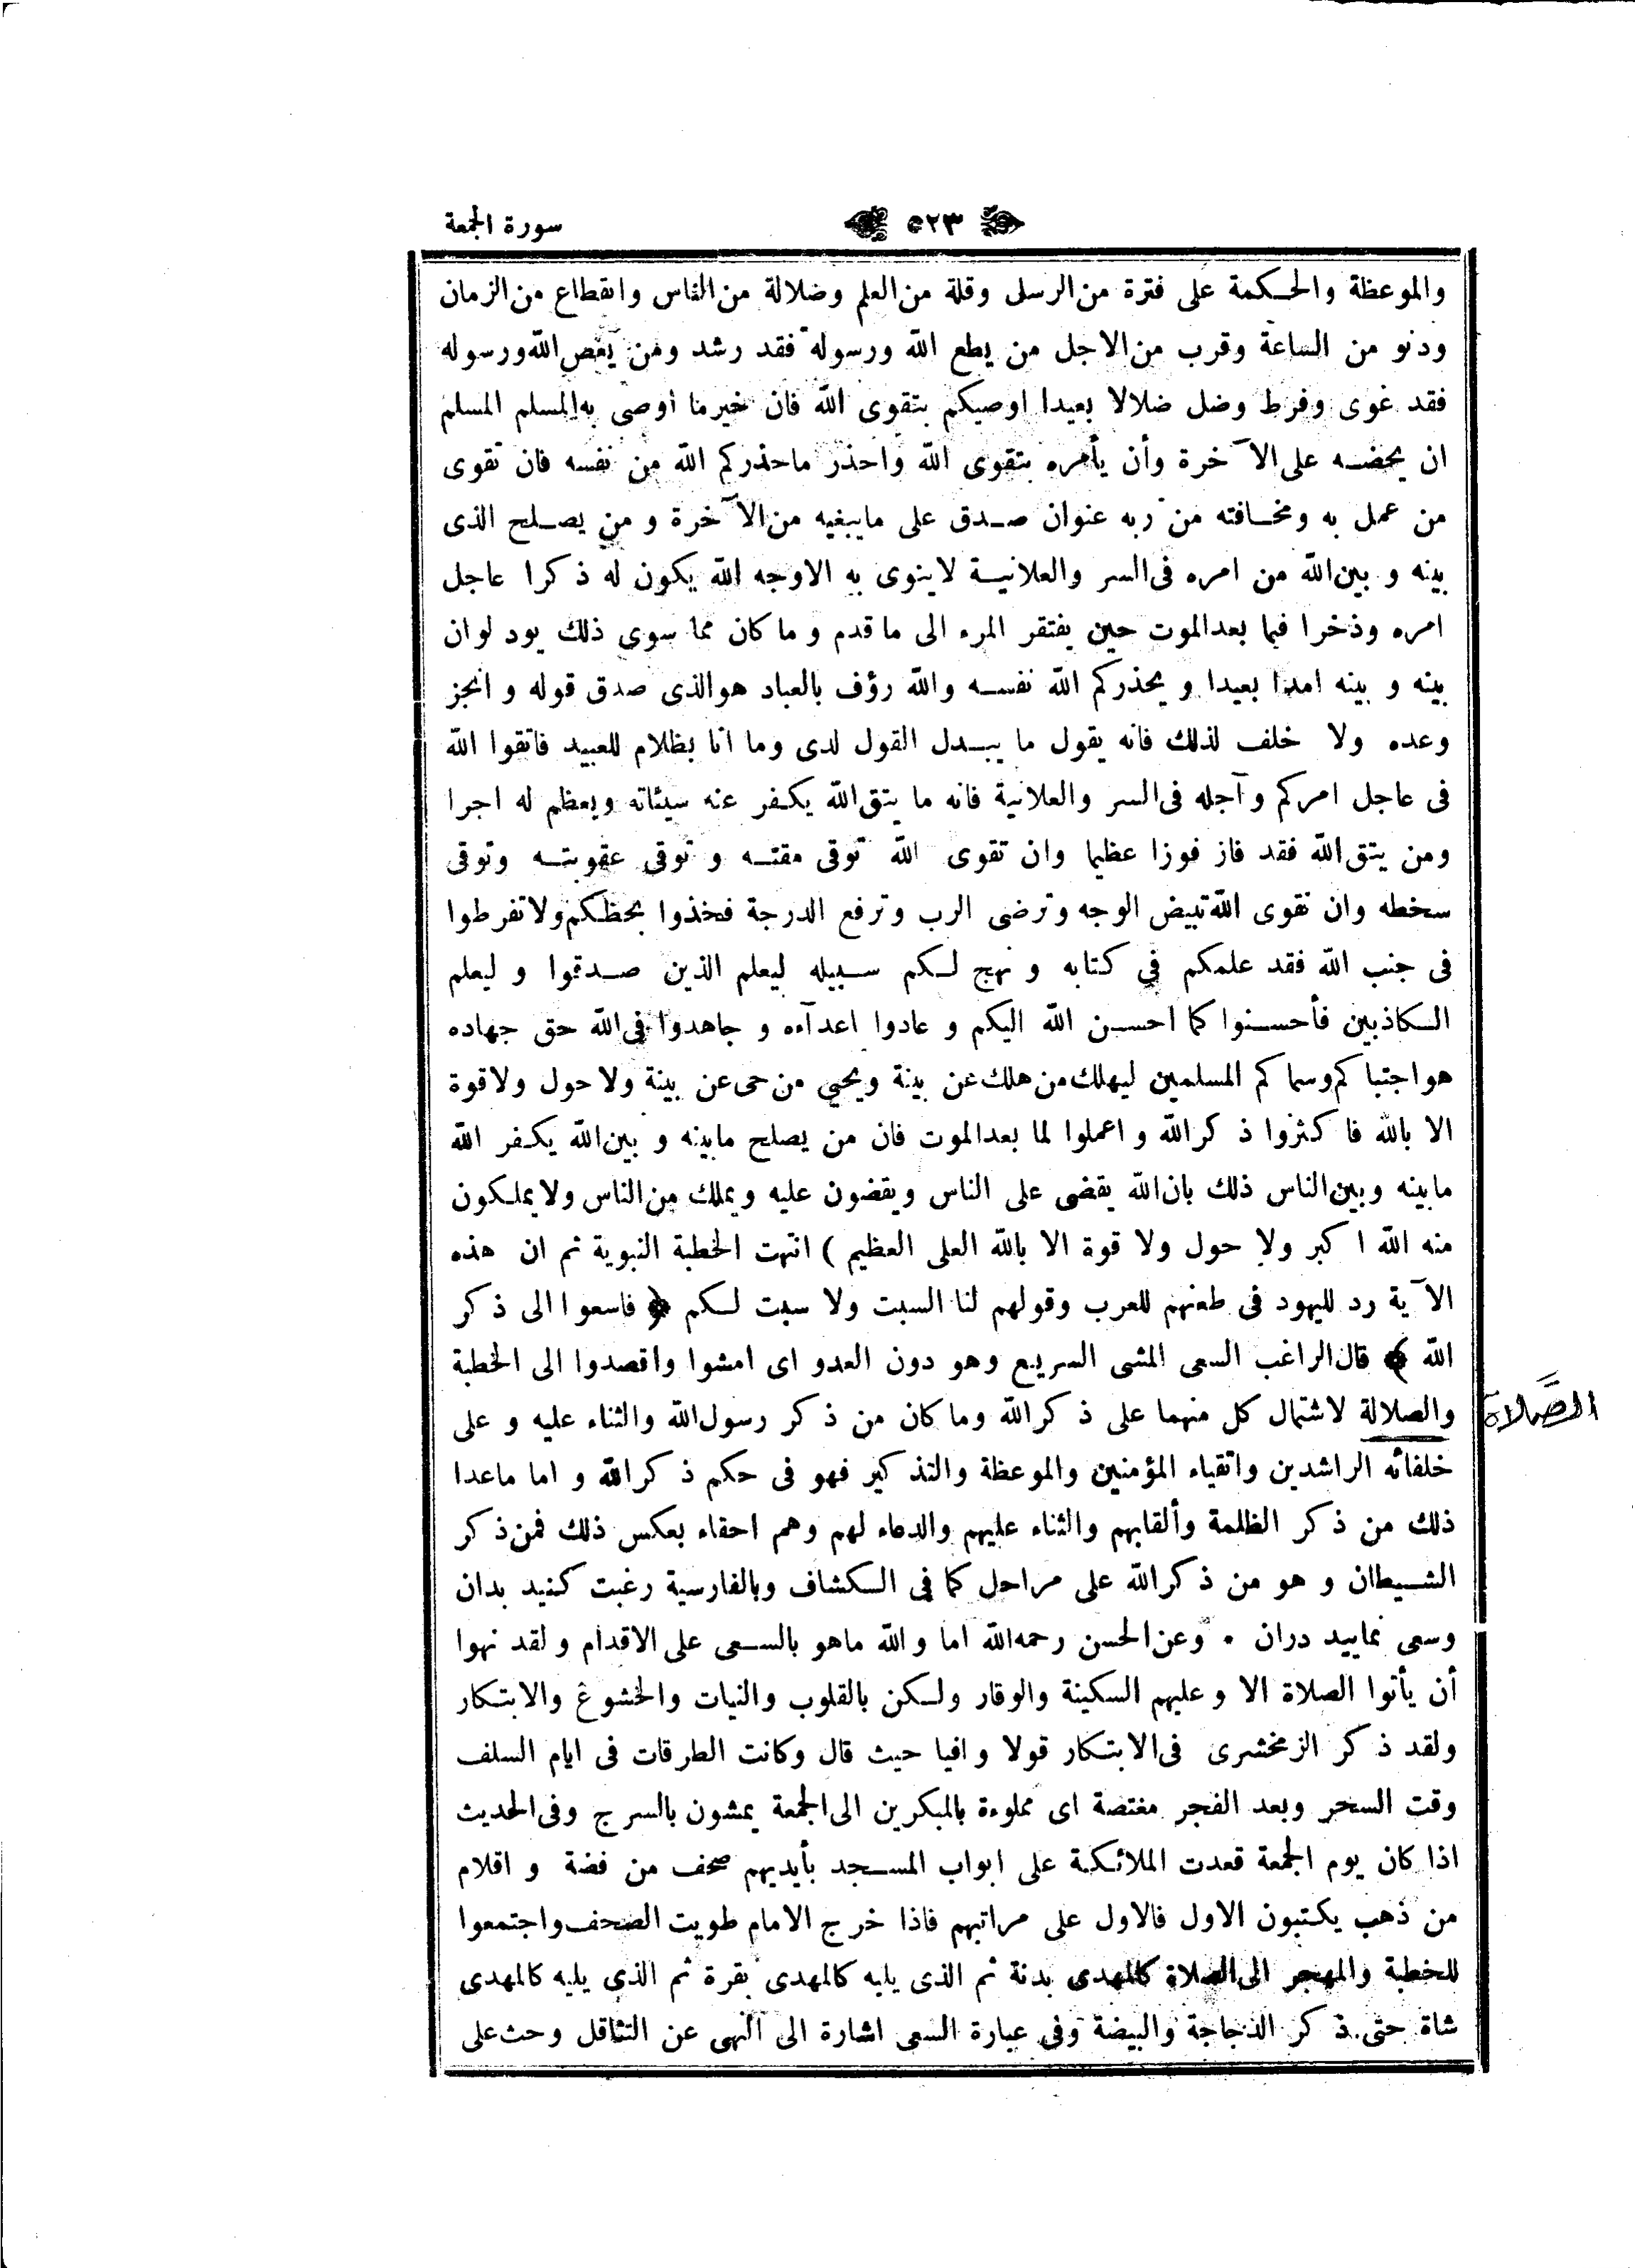 سورة الجمعة
٥٢٣
والموعظة والحكمة على فترة من الرسل وقلة من العلم وضلالة من الناس وانقطاع من الزمان
ودنو من الساعة وقرب من الاجل من يطع الله ورسوله فقد رشد ومن يعص الله ورسوله
فقد غوى وفرط وضل ضلالا بعيدا اوصيكم بتقوى الله فان خير ما أوصى به المسلم المسلم
ان يحضه على الآخرة وأن يأمره بتقوى الله واحذر ماحذركم الله من نفسه فان تقوى
من عمل به ومخافته من ربه عنوان صدق على مايبغيه من الآخرة و من يصلح الذى
بينه و بين الله من امره فى السر والعلانية لاينوى به الاوجه الله يكون له ذكرا عاجل
امره وذخرا فيما بعد الموت حين يفتقر المرء الى ماقدم و ماكان مما سوى ذلك يود لوان
بينه و بينه امدا بعيدا و يحذركم الله نفسه والله رؤف بالعباد هوالذى صدق قوله و انجز
وعده ولا خلف لذلك فانه يقول ما يبدل القول لدى وما انا بظلام للعبيد فاتقوا الله
فى عاجل امركم و آجله فى السر والعلانية فانه ما يتق الله يكفر عنه سيئاته ويعظم له اجرا
ومن يتق الله فقد فاز فوزا عظيما وان تقوى الله توقى مقته و توقى عقوبته وتوقى
سخطه وان تقوى الله تبيض الوجه وترضى الرب وترفع الدرجة فخذوا بحظكم ولاتفرطوا
فى جنب الله فقد علمكم فى كتابه و نهج لكم سبيله ليعلم الذين صدقوا و ليعلم
الكاذبين فأحسنوا كما احسن الله اليكم و عادوا اعدآءه و جاهدوا فى الله حق جهاده
هواجتباكم وسماكم المسلمين ليهلك من هلك عن بينة ويحيى من حى عن بينة ولاحول ولاقوة
الا بالله فاكثروا ذكرالله و اعملوا لما بعدالموت فان من يصلح مابينه و بين الله يكفر الله
مابينه وبين الناس ذلك بان الله يقضى على الناس ويقضون عليه ويملك من الناس ولايملكون
منه الله اكبر ولا حول ولا قوة الا بالله العلى العظيم ) انتهت الخطبة النبوية ثم ان هذه
الآية رد لليهود فى طعنهم للعرب وقولهم لنا السبت ولا سبت لكم ﴿ فاسعوا الى ذكر
الله ﴾ قال الراغب السعى المشى السريع وهو دون العدو اى امشوا واقصدوا الى الخطبة
والصلالة لاشتمال كل منهما على ذكرالله وماكان من ذكر رسول الله والثناء عليه و على
الصَّلاة
خلفائه الراشدين واتقياء المؤمنين والموعظة والتذكير فهو فى حكم ذكرالله و اما ماعدا
ذلك من ذكر الظلمة وألقابهم والثناء عليهم والدعاء لهم وهم احقاء بعكس ذلك فمن ذكر
الشيطان و هو من ذكرالله على مراحل كما فى الكشاف وبالفارسية رغبت كنيد بدان
وسعى نماييد دران • وعن الحسن رحمه الله اما والله ماهو بالسعى على الاقدام ولقد نهوا
أن يأتوا الصلاة الا و عليهم السكينة والوقار ولكن بالقلوب والنيات والخشوع والابتكار
ولقد ذكر الزمخشرى فى الابتكار قولا وافيا حيث قال وكانت الطرقات فى ايام السلف
وقت السحر وبعد الفجر مغتصة اى مملوءة بالمبكرين الى الجمعة يمشون بالسرج وفى الحديث
اذا كان يوم الجمعة قعدت الملائكة على ابواب المسجد بأيديهم صحف من فضة و اقلام
من ذهب يكتبون الاول فالاول على مراتبهم فاذا خرج الامام طويت الصحف واجتمعوا
للخطبة والمهجر الى الصلاة كالمهدى بدنة ثم الذى يليه كالمهدى بقرة ثم الذى يليه كالمهدى
شاة حتى ذكر الدجاجة والبيضة وفى عبارة السعى اشارة الى النهى عن التثاقل وحث على